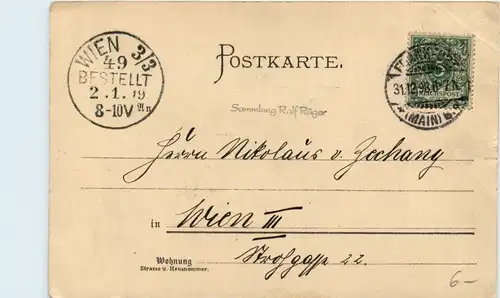 WIEN 3/3
49
BESTELLT
2.1.99
8-10V
POSTKARTE.
Sammlung Ralf Rüger
REICHSPOST
31.12.98.6-7N.
(MAIN)
Herrn Nikolaus v. Zechany
in Wien III
Strohgasse 22.
Wohnung
Strasse u. Hausnummer.
6-